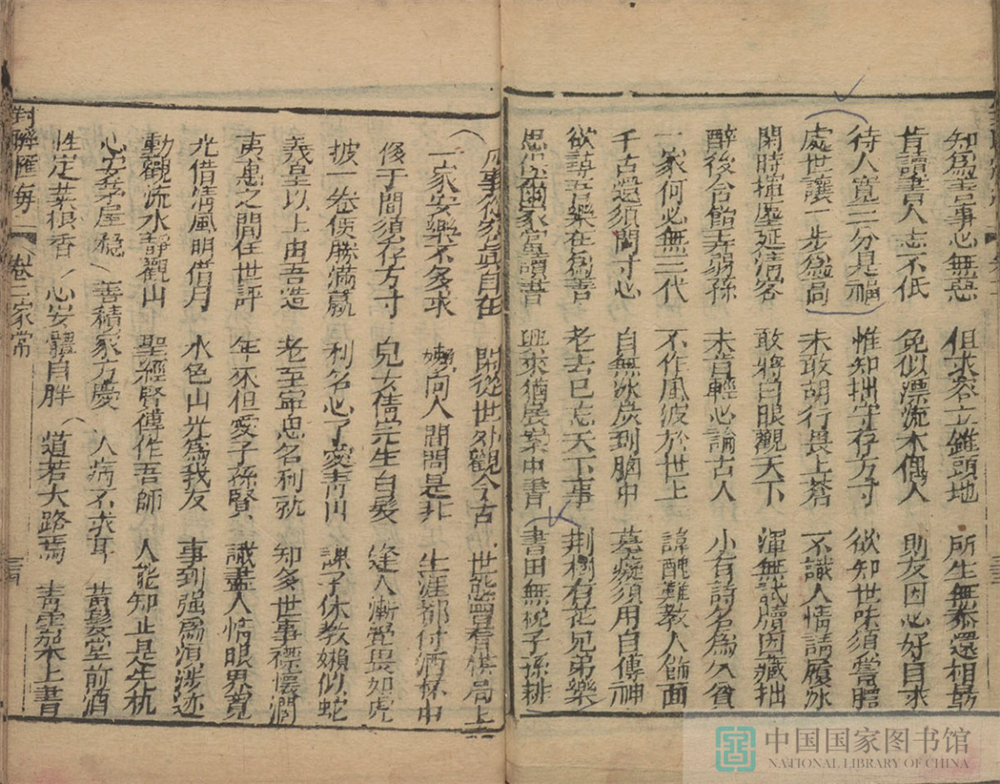 知爲 事心無惡 但求容立錐頭地 所生無忝還相勗
肯讀書人志不低 免似漂流木偶人 則友因心好自求
待人寬三分是福 惟知拙守存方寸 欲知世味須嘗膽
處世讓一步爲高 未敢胡行畏上蒼 不識人情請履冰
閑時揮麈延清客 敢將白眼觀天下 渾無試牘因藏拙
醉後含飴弄弱孫 未肯輕心論古人 小有詩名爲久貧
一家何必無三代 不作風波於世上 諱醜難教人飾面
千古還須問寸心 自無冰炭到胸中 摹癡須用自傳神
欲尋吾樂在爲善 老去已忘天下事 荆樹有花兄弟樂
思 富讀書 興來猶展案中書 書田無稅子孫耕
事 自在 閑從世外觀今古 世態曾看棋局上
一家安樂不多求 嬾向人間問是非 生涯都付酒杯中
後于間須存方寸 兒女債完生白髮 逢人漸覺畏如虎
披一卷便勝滿籝 利名心了愛青山 課子休教嬾似蛇
羲皇以上由吾造 老至寧忘名利熟 知多世事襟懷濶
夷惠之間任世評 年來但愛子孫賢 識盡人情眼界寬
光借清風明借月 水色山光爲我友 事到強爲 涉迹
動觀流水靜觀山 聖經賢傳作吾師 人能知止是生机
心安茅屋穩 善積家方慶 人病不求耳 黃髮堂前酒
性定菜根香 心安體自胖 道若大路焉 青雲架上書
對聯匯海 卷 二家常
中国国家图书馆
NATIONAL LIBRARY OF CHINA